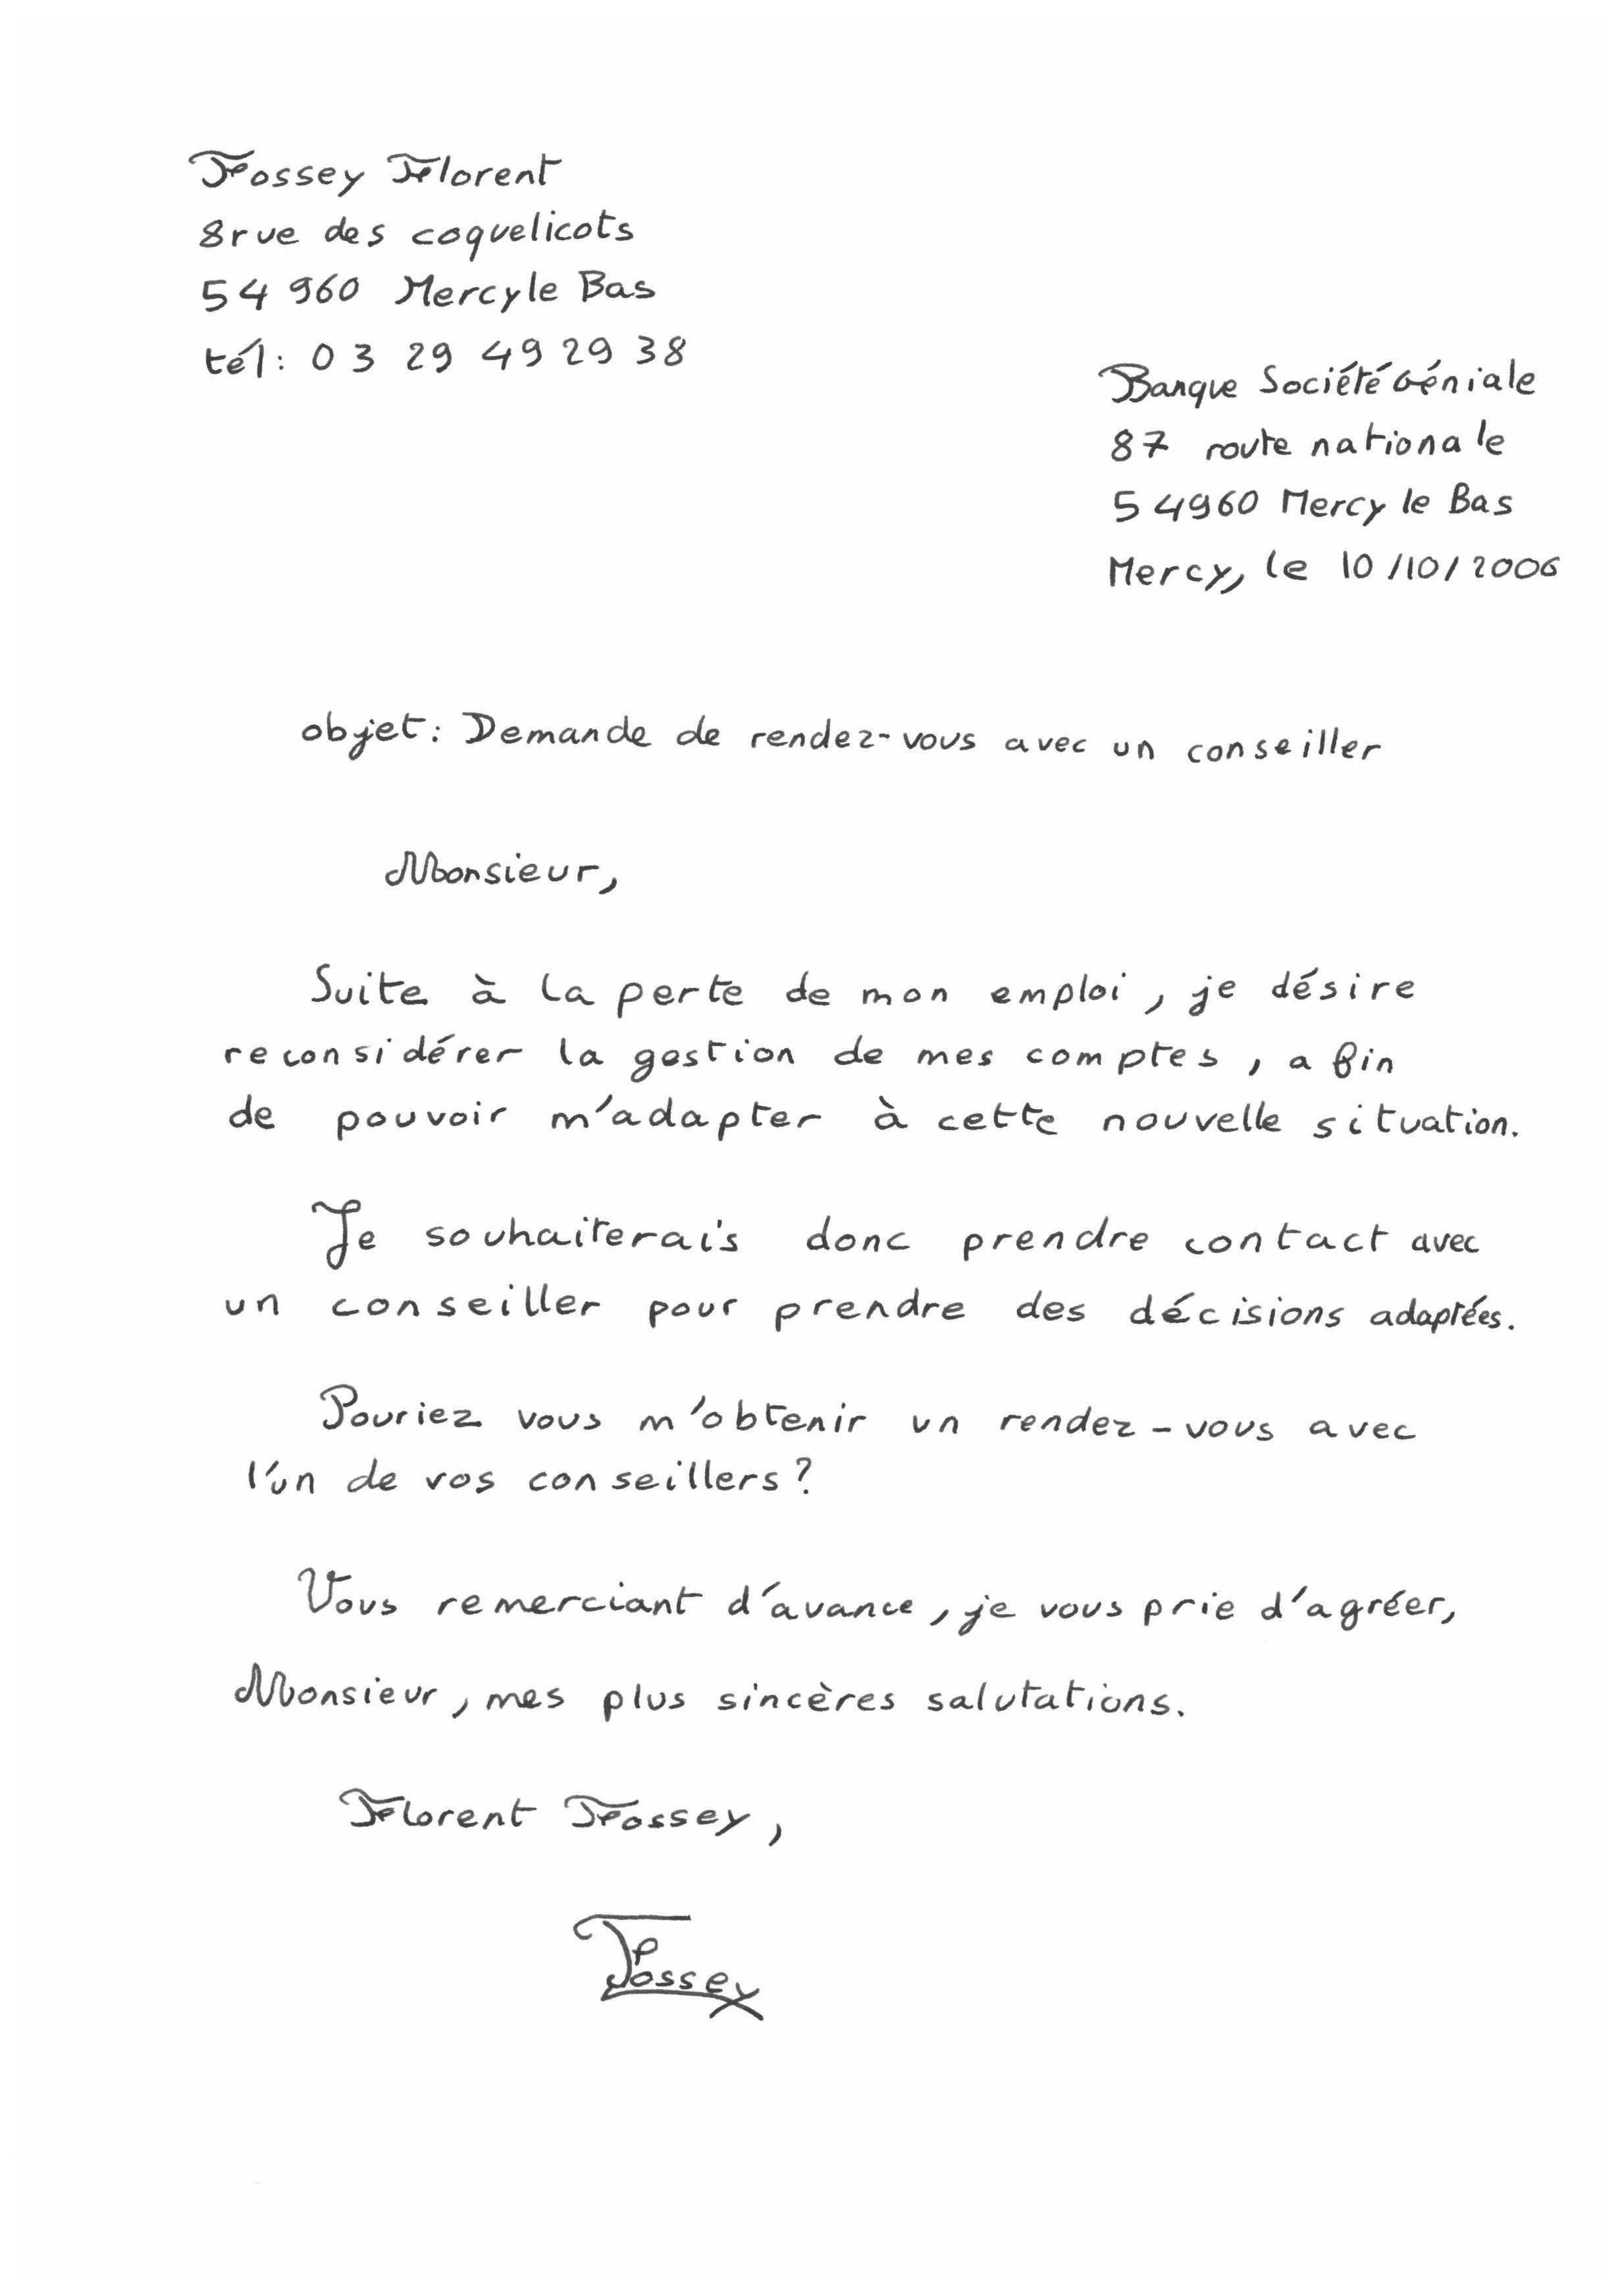 Fossey Florent
8 rue des coquelicots
54 960 Mercy le Bas
tél : 03 29 49 29 38
Banque Société Géniale
87 route nationale
54960 Mercy le Bas
Mercy, le 10/10/2006
objet : Demande de rendez-vous avec un conseiller
Monsieur,
Suite à la perte de mon emploi, je désire
reconsidérer la gestion de mes comptes, afin
de pouvoir m'adapter à cette nouvelle situation.
Je souhaiterais donc prendre contact avec
un conseiller pour prendre des décisions adaptées.
Pouriez vous m'obtenir un rendez-vous avec
l'un de vos conseillers ?
Vous remerciant d'avance, je vous prie d'agréer,
Monsieur, mes plus sincères salutations.
Florent Fossey,
Fossey